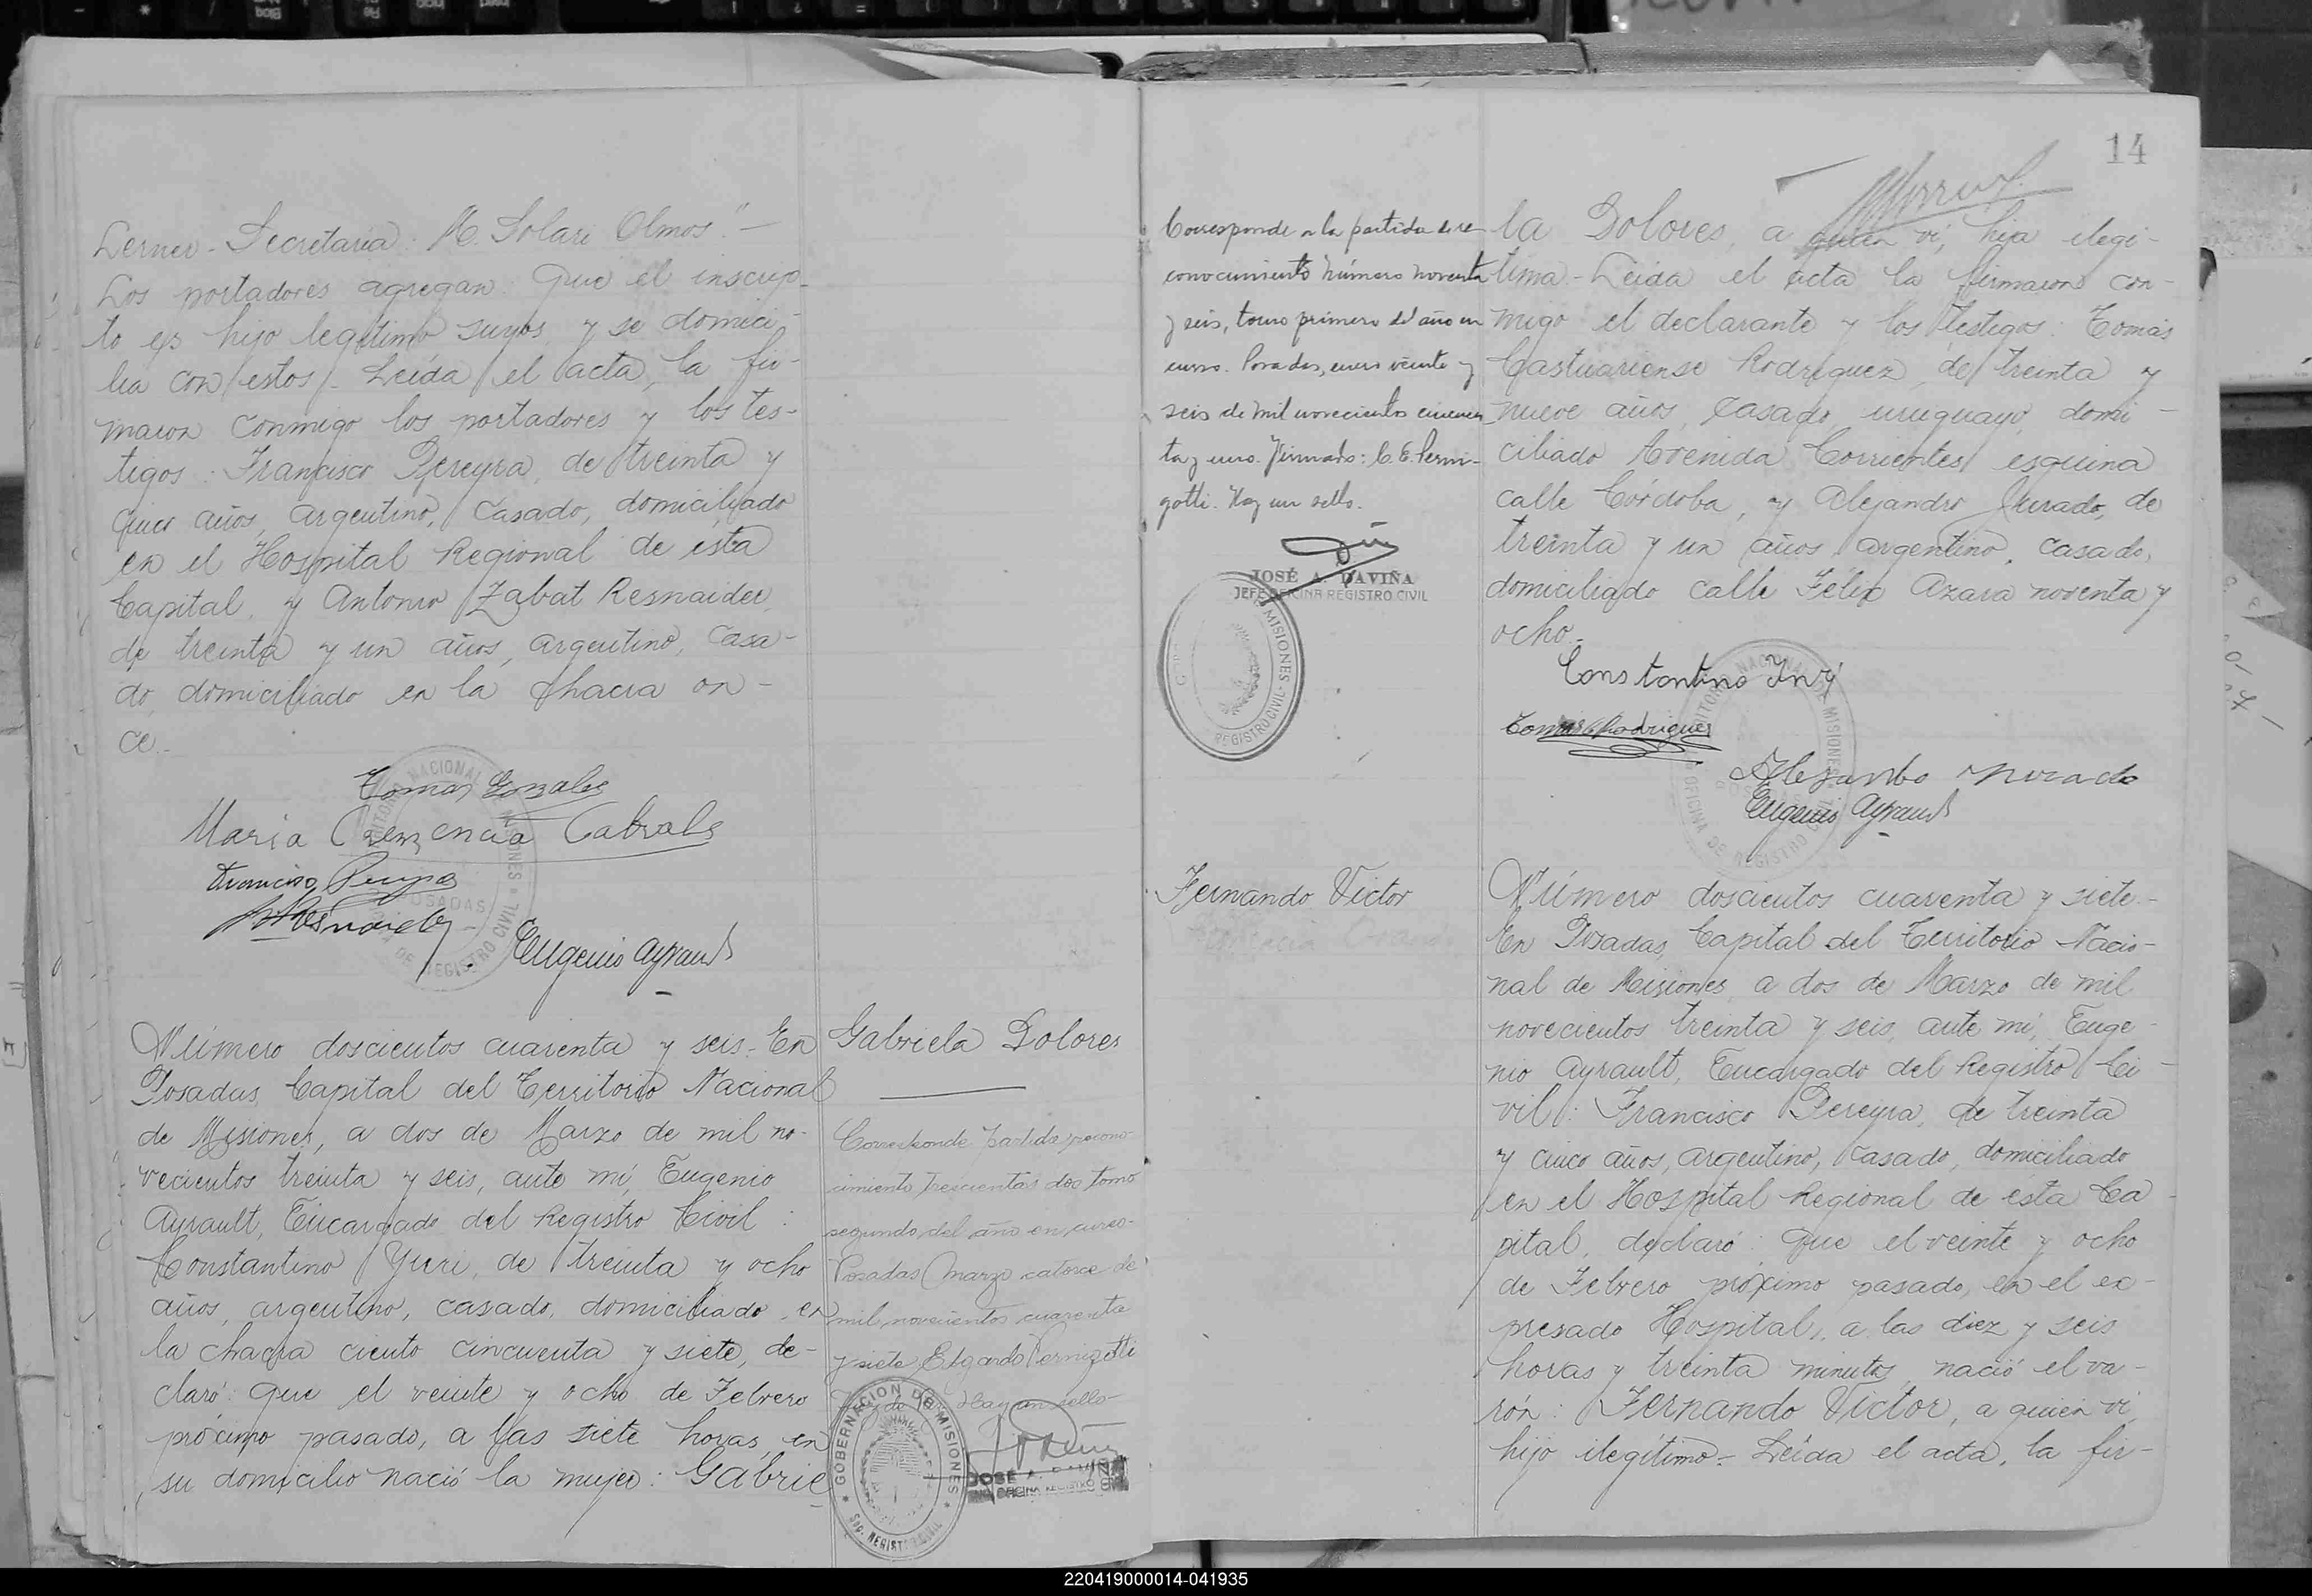 Lerner - Secretaria: M. Solari Olmos". -
Los portadores agregan: Que el inscrip-
to es hijo legítimo suyos y se domici-
lia con estos. - Leída el acta, la fir-
maron conmigo los portadores y los tes-
tigos: Francisco Pereyra, de treinta y
cinco años, argentino, casado, domiciliado
en el Hospital Regional de esta
Capital, y Antonio Zabat Resnaider,
de treinta y un años, argentino, casa-
do, domiciliado en la chacra on-
ce.-
Tomas Gonzales
Maria Cabral
Francisco Pereyra
Eugenio Ayrault
Número doscientos cuarenta y seis - En
Posadas, Capital del Territorio Nacional
de Misiones, a dos de Marzo de mil no-
vecientos treinta y seis, ante mí, Eugenio
Ayrault, Encargado del Registro Civil:
Constantino Yuri, de treinta y ocho
años, argentino, casado, domiciliado en
la chacra ciento cincuenta y siete, de-
claró: Que el veinte y ocho de Febrero
próximo pasado, a las siete horas, en
su domicilio nació la mujer: Gabrie
Gabriela Dolores
Corresponde partida recono-
cimiento trescientos dos tomo
segundo del año en curso-
Posadas Marzo catorce de
mil novecientos cuarenta
y siete, Edgardo Pernigotti
Hay un sello-
GOBERNACION DE MISIONES
REGISTRO CIVIL
JOSÉ A. DAVIÑA
14
Corresponde a la partida de re-
conocimiento número noventa
y seis, tomo primero del año en
curso. Posadas, enero veinte y
seis de mil novecientos cincuen
ta y uno. Firmado: C. E. Perni-
gotti. Hay un sello.
JOSÉ A. DAVIÑA
JEFE OFICINA REGISTRO CIVIL
MISIONES
REGISTRO CIVIL
la Dolores, a quien ví, hija ilegí-
tima - Leída el acta la firmaron con-
migo el declarante y los testigos: Tomás
Castuariense Rodríguez, de treinta y
nueve años, casado, uruguayo, domi-
ciliado Avenida Corrientes esquina
calle Córdoba, y Alejandro Jurado, de
treinta y un años, argentino, casado,
domiciliado calle Félix Azara noventa y
ocho.-
Constantino
Tomas C Rodriguez
Eugenio Ayrault
Fernando Victor
Número doscientos cuarenta y siete.-
En Posadas, Capital del Territorio Nacio-
nal de Misiones, a dos de Marzo de mil
novecientos treinta y seis, ante mí, Euge-
nio Ayrault, Encargado del Registro Ci-
vil: Francisco Pereyra, de treinta
y cinco años, argentino, casado, domiciliado
en el Hospital Regional de esta Ca-
pital, declaró: Que el veinte y ocho
de Febrero próximo pasado, en el ex-
presado Hospital, a las diez y seis
horas y treinta minutos, nació el va-
rón: Fernando Victor, a quien ví,
hijo ilegítimo - Leída el acta, la fir-
220419000014-041935